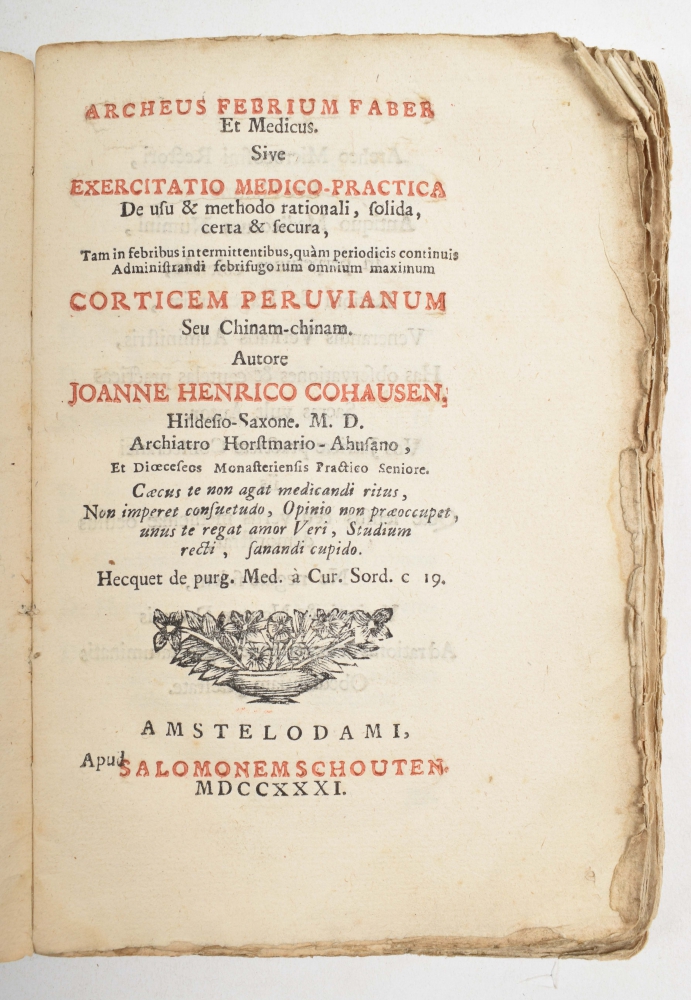 ARCHEUS FEBRIUM FABER
Et Medicus.
Sive
EXERCITATIO MEDICO-PRACTICA
De uſu & methodo rationali, ſolida,
certa & ſecura,
Tam in febribus intermittentibus, quàm periodicis continuis
Adminiſtrandi febrifugorum omnium maximum
CORTICEM PERUVIANUM
Seu Chinam-chinam.
Autore
JOANNE HENRICO COHAUSEN,
Hildeſio-Saxone. M. D.
Archiatro Horſtmario-Ahuſano,
Et Diœceſeos Monaſterienſis Practico Seniore.
Cæcus te non agat medicandi ritus,
Non imperet conſuetudo, Opinio non præoccupet,
unus te regat amor Veri, Studium
recti, ſanandi cupido.
Hecquet de purg. Med. à Cur. Sord. c 19.
AMSTELODAMI,
Apud SALOMONEM SCHOUTEN.
MDCCXXXI.